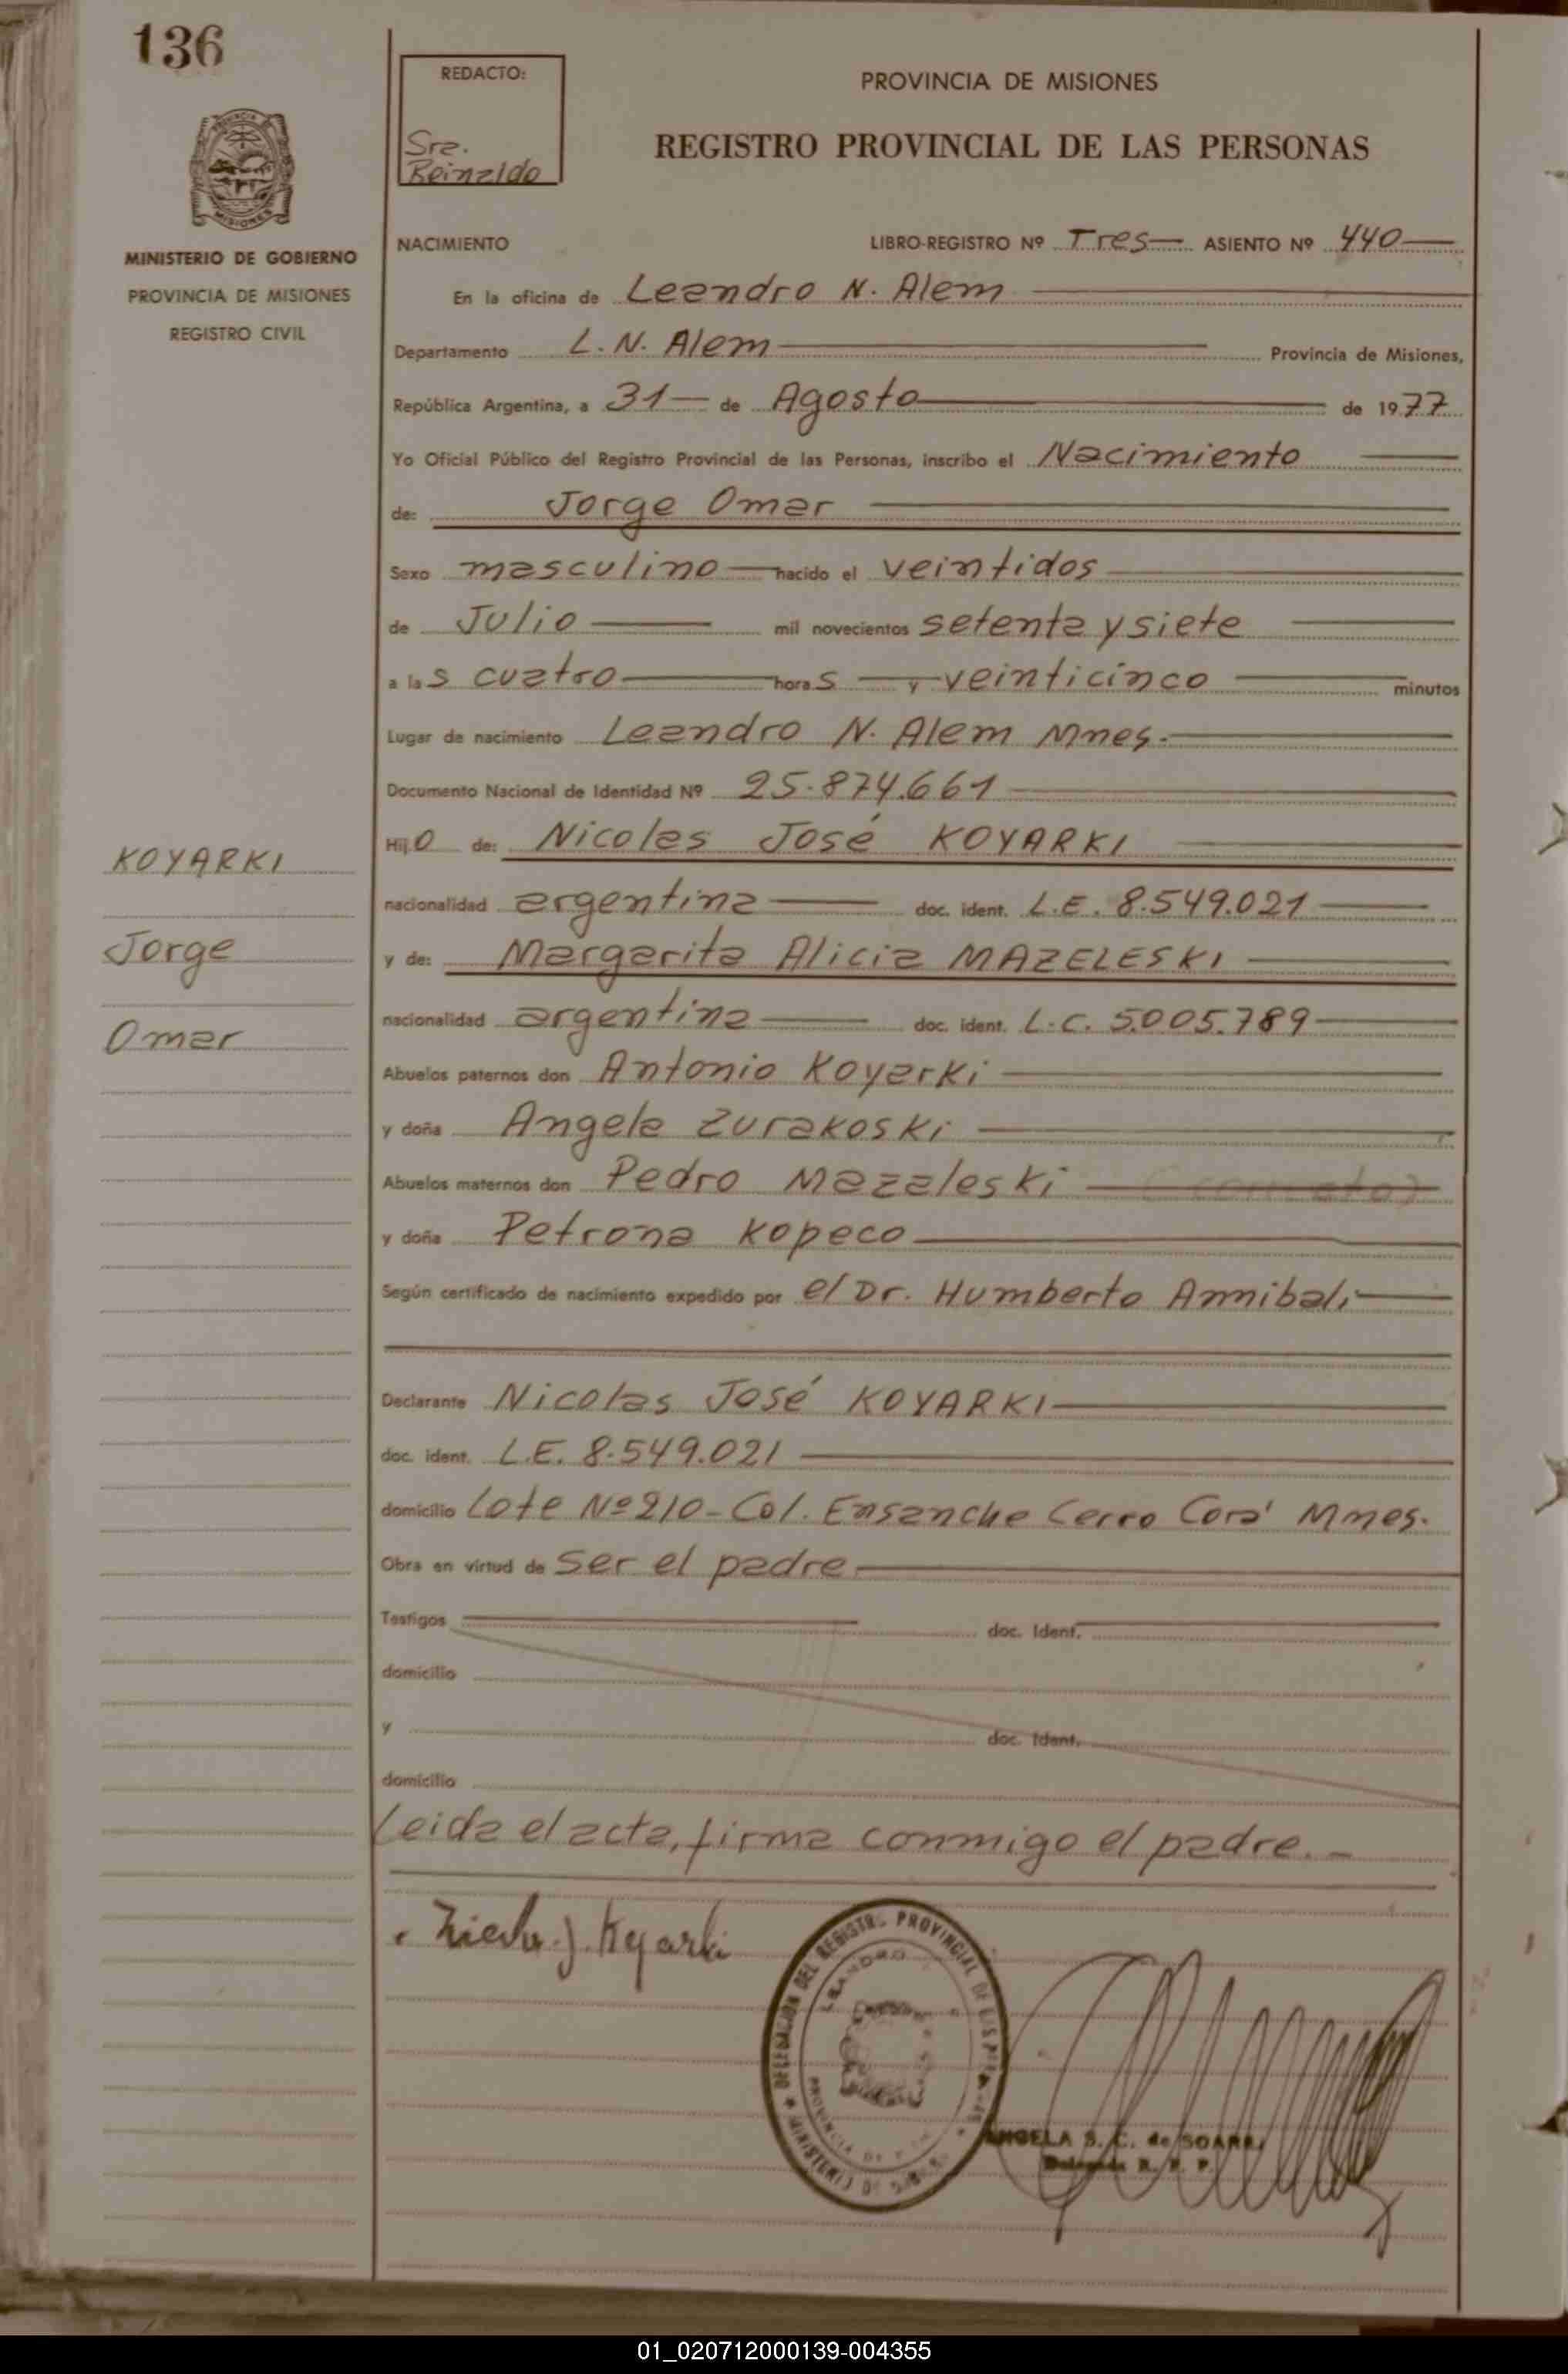 136
REDACTO:
Sra.
Reinaldo
PROVINCIA DE MISIONES
REGISTRO PROVINCIAL DE LAS PERSONAS
MINISTERIO DE GOBIERNO
PROVINCIA DE MISIONES
REGISTRO CIVIL
NACIMIENTO LIBRO-REGISTRO Nº Tres ASIENTO Nº 440
En la oficina de Leandro N. Alem
Departamento L. N. Alem Provincia de Misiones,
República Argentina, a 31 de Agosto de 1977
Yo Oficial Público del Registro Provincial de las Personas, inscribo el Nacimiento
de: Jorge Omar
Sexo masculino nacido el veintidos
de Julio mil novecientos setenta y siete
a las cuatro horas y veinticinco minutos
Lugar de nacimiento Leandro N. Alem Mnes.
Documento Nacional de Identidad Nº 25.874.661
Hijo de: Nicolas José KOYARKI
KOYARKI
nacionalidad argentina doc. ident. L.E. 8.549.021
Jorge
y de: Margarita Alicia MAZELESKI
nacionalidad argentina doc. ident. L.C. 5.005.789
Omar
Abuelos paternos don Antonio Koyarki
y doña Angela Zurakoski
Abuelos maternos don Pedro Mazaleski
y doña Petrona Kopeco
Según certificado de nacimiento expedido por el Dr. Humberto Annibali
Declarante Nicolas José KOYARKI
doc. ident. L.E. 8.549.021
domicilio Lote Nº 210 - Col. Ensanche Cerro Corá Mnes.
Obra en virtud de ser el padre
Testigos doc. Ident.
domicilio
y doc. Ident.
domicilio
Leida el acta, firma conmigo el padre.
J. Koyarki
DELEGACION DEL REGISTRO PROVINCIAL DE LAS
LEANDRO
PROVINCIA DE
MINISTERIO DE
ANGELA S. C. de SOARE
Delegada R. P. P.
01_020712000139-004355